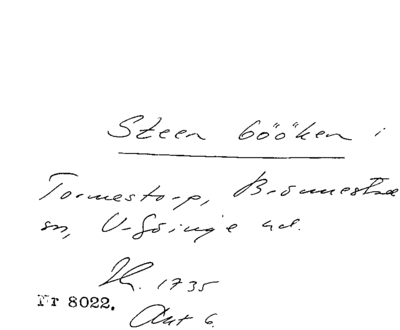 Steen bööken i
Tormestorp, Brönnestad
sn, V. Göinge hd.
Lh. 1735
Nr 8022. Akt 6.